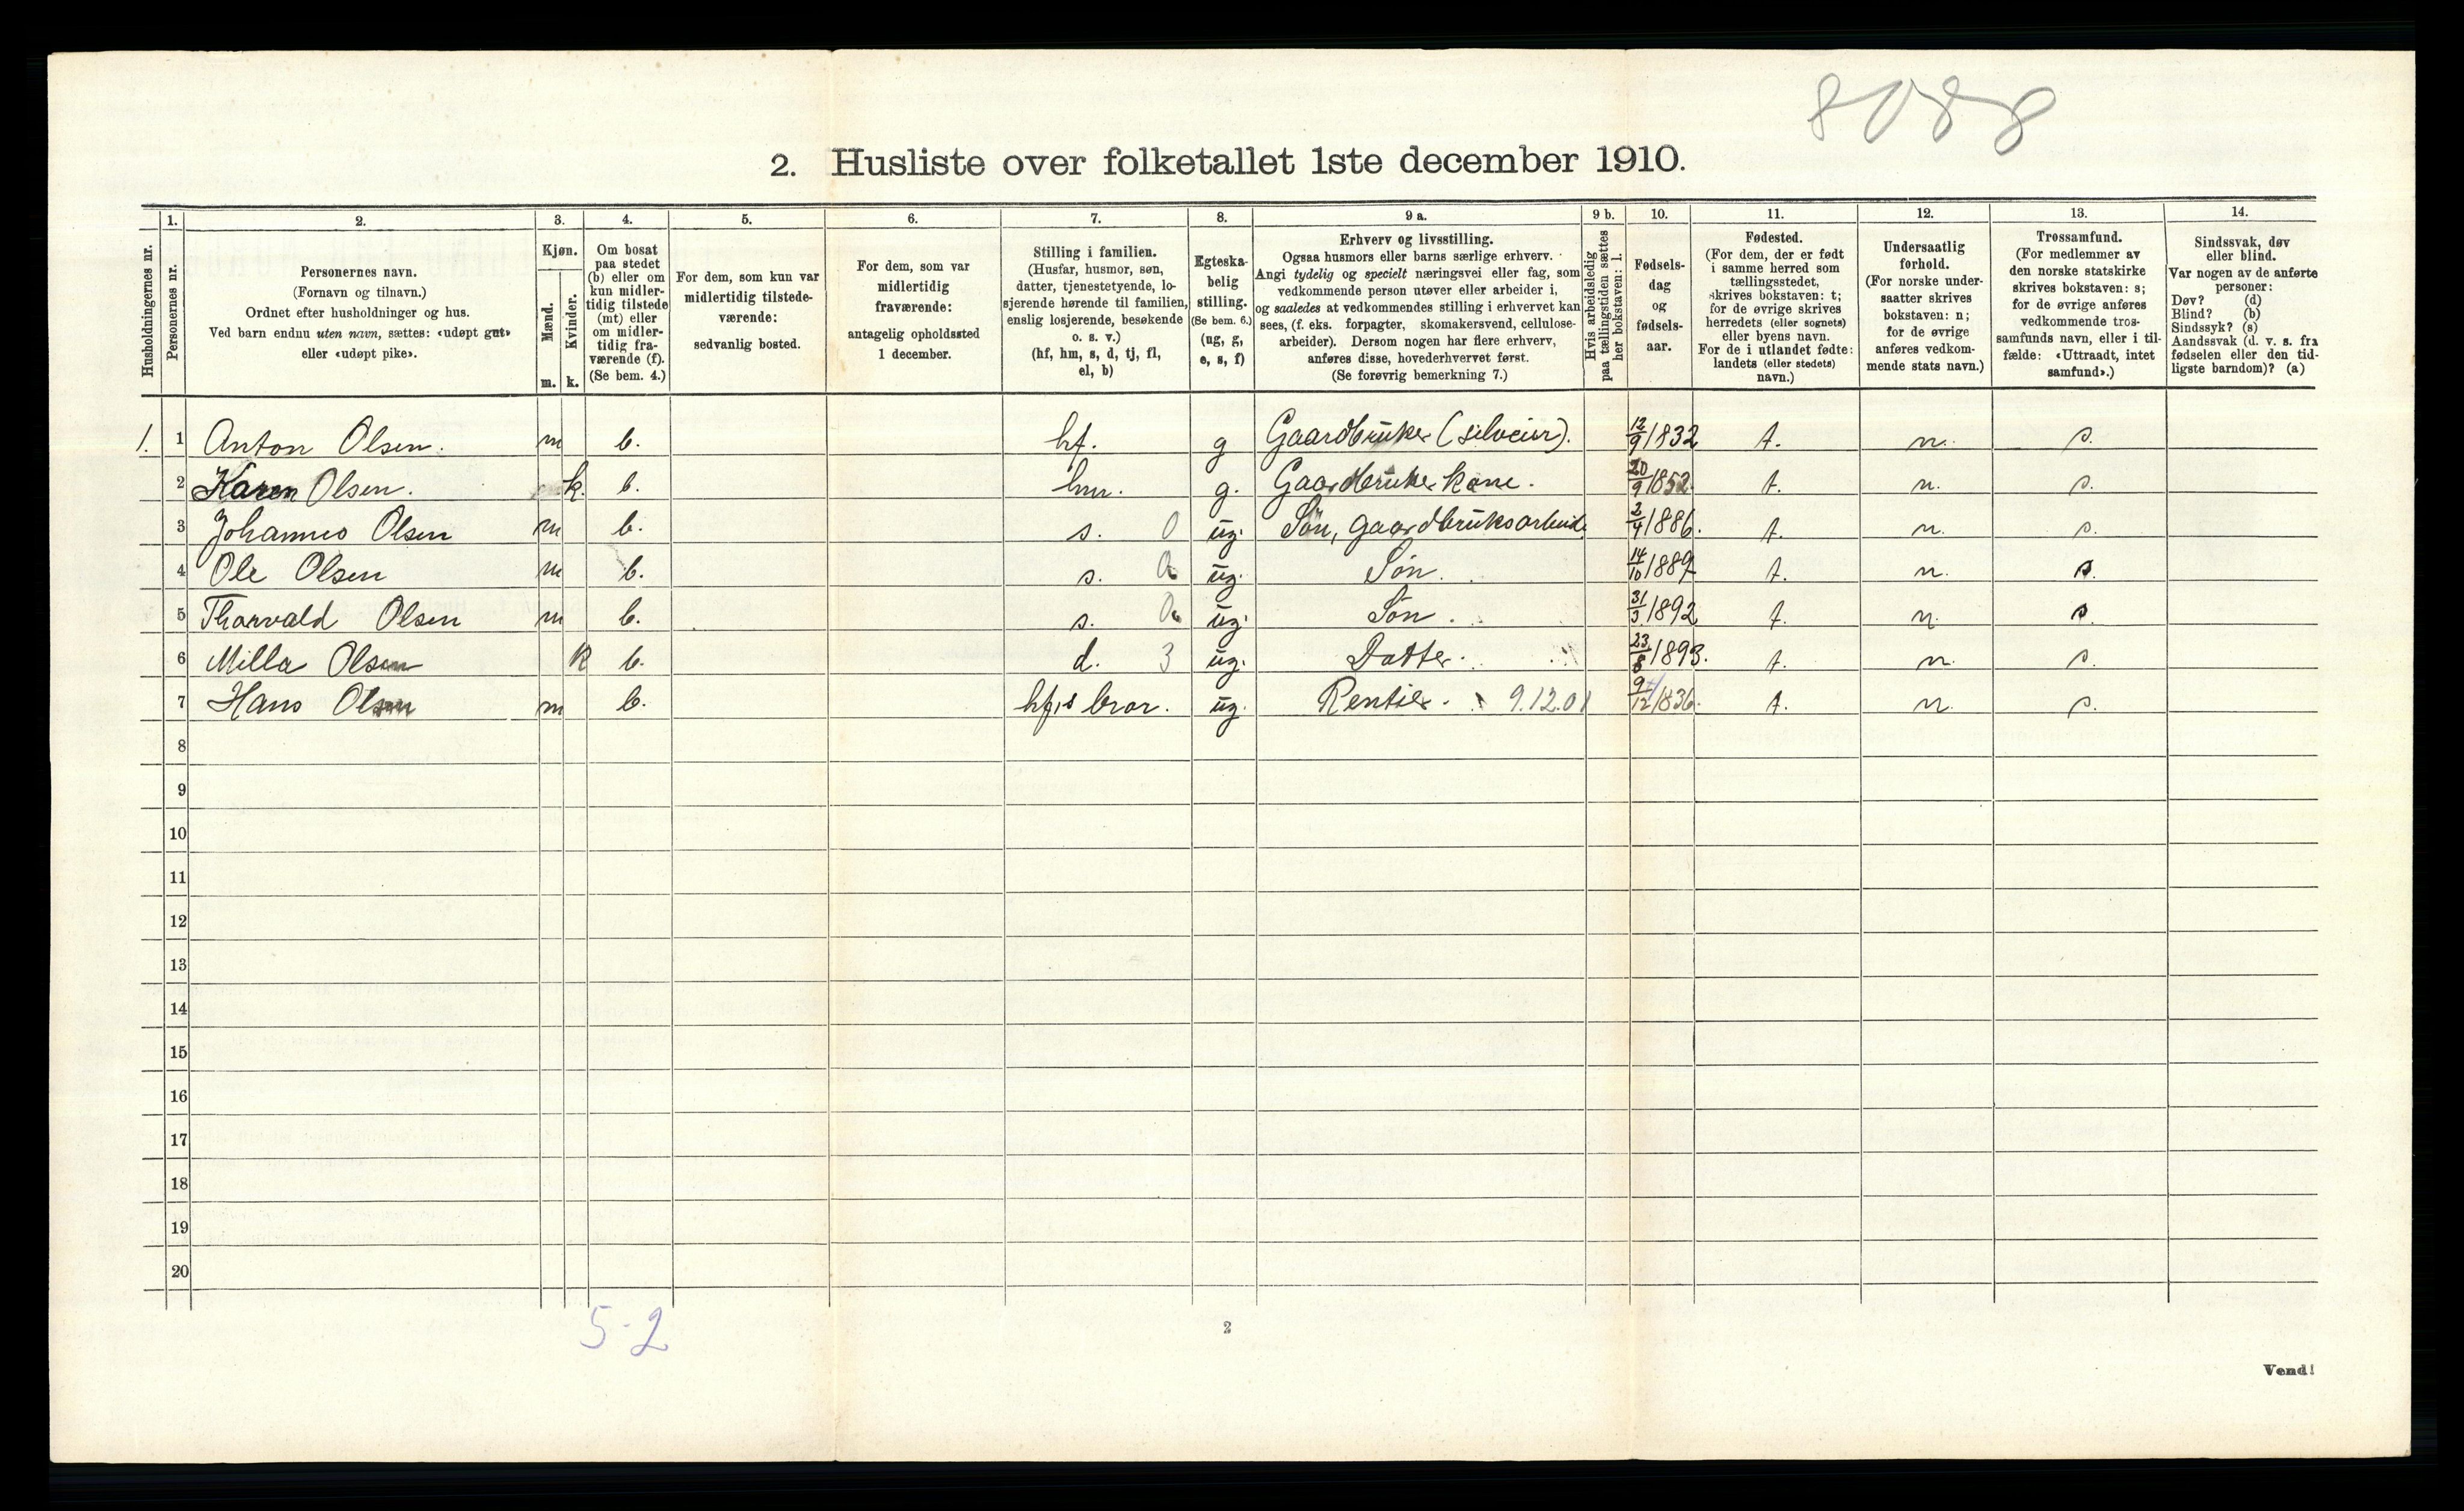 8088
2. Husliste over folketallet 1ste december 1910.
Husholdningernes nr.
1.
Personernes nr.
2.
Personernes navn.
(Fornavn og tilnavn.)
Ordnet efter husholdninger og hus.
Ved barn endnu uten navn, sættes: «udøpt gut»
eller «udøpt pike».
3.
Kjøn.
Mænd.
Kvinder.
m. k.
4.
Om bosat
paa stedet
(b) eller om
kun midler-
tidig tilstede
(mt) eller
om midler-
tidig fra-
værende (f).
(Se bem. 4.)
5.
For dem, som kun var
midlertidig tilstede-
værende:
sedvanlig bosted.
6.
For dem, som var
midlertidig
fraværende:
antagelig opholdssted
1 december.
7.
Stilling i familien.
(Husfar, husmor, søn,
datter, tjenestetyende, lo-
sjerende hørende til familien,
enslig losjerende, besøkende
o. s. v.)
(hf, hm, s, d, tj, fl,
el, b)
8.
Egteska-
belig
stilling.
(Se bem. 6.)
(ug, g,
e, s, f)
9 a.
Erhverv og livsstilling.
Ogsaa husmors eller barns særlige erhverv.
Angi tydelig og specielt næringsvei eller fag, som
vedkommende person utøver eller arbeider i,
og saaledes at vedkommendes stilling i erhvervet kan
sees, (f. eks. forpagter, skomakersvend, cellulose-
arbeider). Dersom nogen har flere erhverv,
anføres disse, hovederhvervet først.
(Se forøvrig bemerkning 7.)
9 b.
Hvis arbeidsledig
paa tællingstiden sættes
her bokstaven: l.
10.
Fødsels-
dag
og
fødsels-
aar.
11.
Fødested.
(For dem, der er født
i samme herred som
tællingsstedet,
skrives bokstaven: t;
for de øvrige skrives
herredets (eller sognets)
eller byens navn.
For de i utlandet fødte:
landets (eller stedets)
navn.)
12.
Undersaatlig
forhold.
(For norske under-
saatter skrives
bokstaven: n;
for de øvrige
anføres vedkom-
mende stats navn.)
13.
Trossamfund.
(For medlemmer av
den norske statskirke
skrives bokstaven: s;
for de øvrige anføres
vedkommende tros-
samfunds navn, eller i til-
fælde: «Uttraadt, intet
samfund».)
14.
Sindssvak, døv
eller blind.
Var nogen av de anførte
personer:
Døv? (d)
Blind? (b)
Sindssyk? (s)
Aandssvak (d. v. s. fra
fødselen eller den tid-
ligste barndom)? (a)
1. 1 Anton Olsen. m b. hf. g Gaardbruker (selveier). 12/9 1832 t. n. s.
2 Karen Olsen. k. b. hm. g. Gaardbruker kone. 20/9 1852 t. n. s.
3 Johannes Olsen m b. s. 0 ug. Søn, gaardbruksarbeid. 2/4 1886. t. n. s.
4 Ole Olsen m b. s. ug. Søn. 14/10 1889 t. n. s.
5 Thorvald Olsen m b. s. ug. Søn. 31/3 1892 t. n. s.
6 Milla Olsen k b. d. 3 ug. Datter. 23/8 1893. t. n. s.
7 Hans Olsen m b. hf,s bror. ug. Rentier. 9.12.01 9/12 1836. t. n. s.
8
9
10
11
12
13
14
15
16
17
18
19
20
5-2
2
Vend!